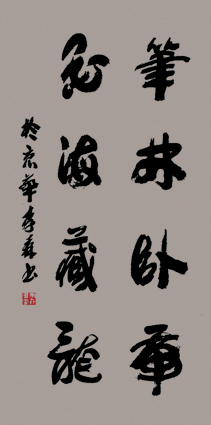 筆林卧虎
墨海藏龍
於京華李森书